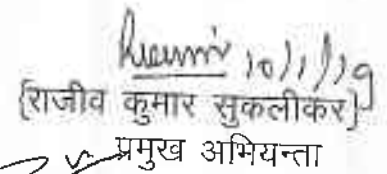 10/1/19
{राजीव कुमार सुकलीकर}
प्रमुख अभियन्ता